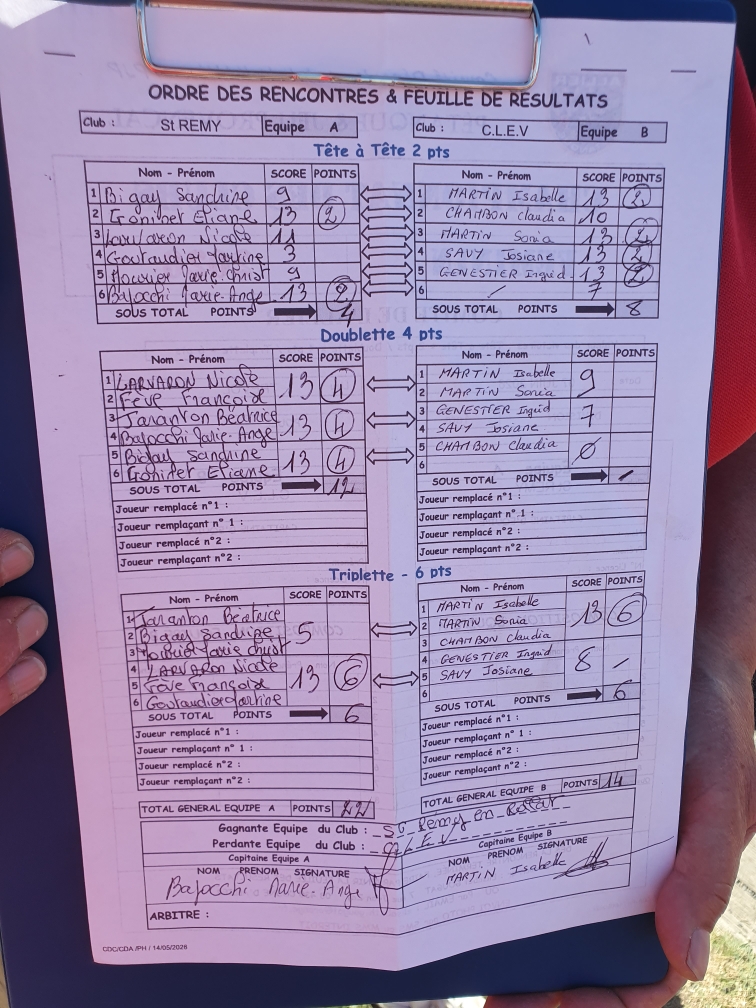 ORDRE DES RENCONTRES & FEUILLE DE RESULTATS
Club : St REMY Equipe A Club : C.L.E.V Equipe B
Tête à Tête 2 pts
Nom - Prénom SCORE POINTS Nom - Prénom SCORE POINTS
1 Bigay Sandrine 9 1 MARTIN Isabelle 13 2
2 Goninet Eliane 13 2 2 CHAMBON Claudia 10
3 Larvaron Nicole 11 3 MARTIN Sonia 13 2
4 Goutaudier Martine 3 4 SAVY Josiane 13 2
5 Mourier Marie.Christ 9 5 GENESTIER Ingrid 13 2
6 Bajocchi Marie-Ange 13 2 6 / 7
SOUS TOTAL POINTS 4 SOUS TOTAL POINTS 8
Doublette 4 pts
Nom - Prénom SCORE POINTS Nom - Prénom SCORE POINTS
1 LARVARON Nicole 13 4 1 MARTIN Isabelle 9
2 Fève Françoise 2 MARTIN Sonia
3 Taranton Béatrice 13 4 3 GENESTIER Ingrid 7
4 Bajocchi Marie-Ange 4 SAVY Josiane
5 Bigay Sandrine 13 4 5 CHAMBON Claudia 0
6 Goninet Eliane 6
SOUS TOTAL POINTS 12 SOUS TOTAL POINTS /
Joueur remplacé n°1 : Joueur remplacé n°1 :
Joueur remplaçant n° 1 : Joueur remplaçant n° 1 :
Joueur remplacé n°2 : Joueur remplacé n°2 :
Joueur remplaçant n°2 : Joueur remplaçant n°2 :
Triplette - 6 pts
Nom - Prénom SCORE POINTS Nom - Prénom SCORE POINTS
1 Taranton Béatrice 5 1 MARTIN Isabelle 13 6
2 Bigay Sandrine 2 MARTIN Sonia
3 Marie Christ 3 CHAMBON Claudia
4 LARVARON Nicole 13 6 4 GENESTIER Ingrid 8 /
5 Fève Françoise 5 SAVY Josiane
6 Goutaudier Martine 6
SOUS TOTAL POINTS 6 SOUS TOTAL POINTS 6
Joueur remplacé n°1 : Joueur remplacé n°1 :
Joueur remplaçant n° 1 : Joueur remplaçant n° 1 :
Joueur remplacé n°2 : Joueur remplacé n°2 :
Joueur remplaçant n°2 : Joueur remplaçant n°2 :
TOTAL GENERAL EQUIPE A POINTS 22 TOTAL GENERAL EQUIPE B POINTS 14
Gagnante Equipe du Club : St Remy en Rollat
Perdante Equipe du Club : CLEV
Capitaine Equipe A Capitaine Equipe B
NOM PRENOM SIGNATURE NOM PRENOM SIGNATURE
Bajocchi Marie-Ange MARTIN Isabelle
ARBITRE :
CDC/CDA /PH / 14/05/2026